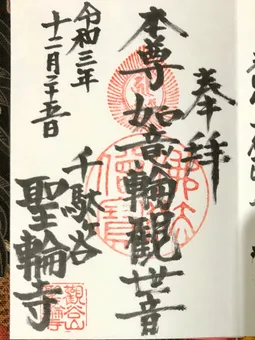 奉拝
本尊如意輪観世音
令和三年
十二月二十五日
千駄ヶ谷
聖輪寺
観谷山